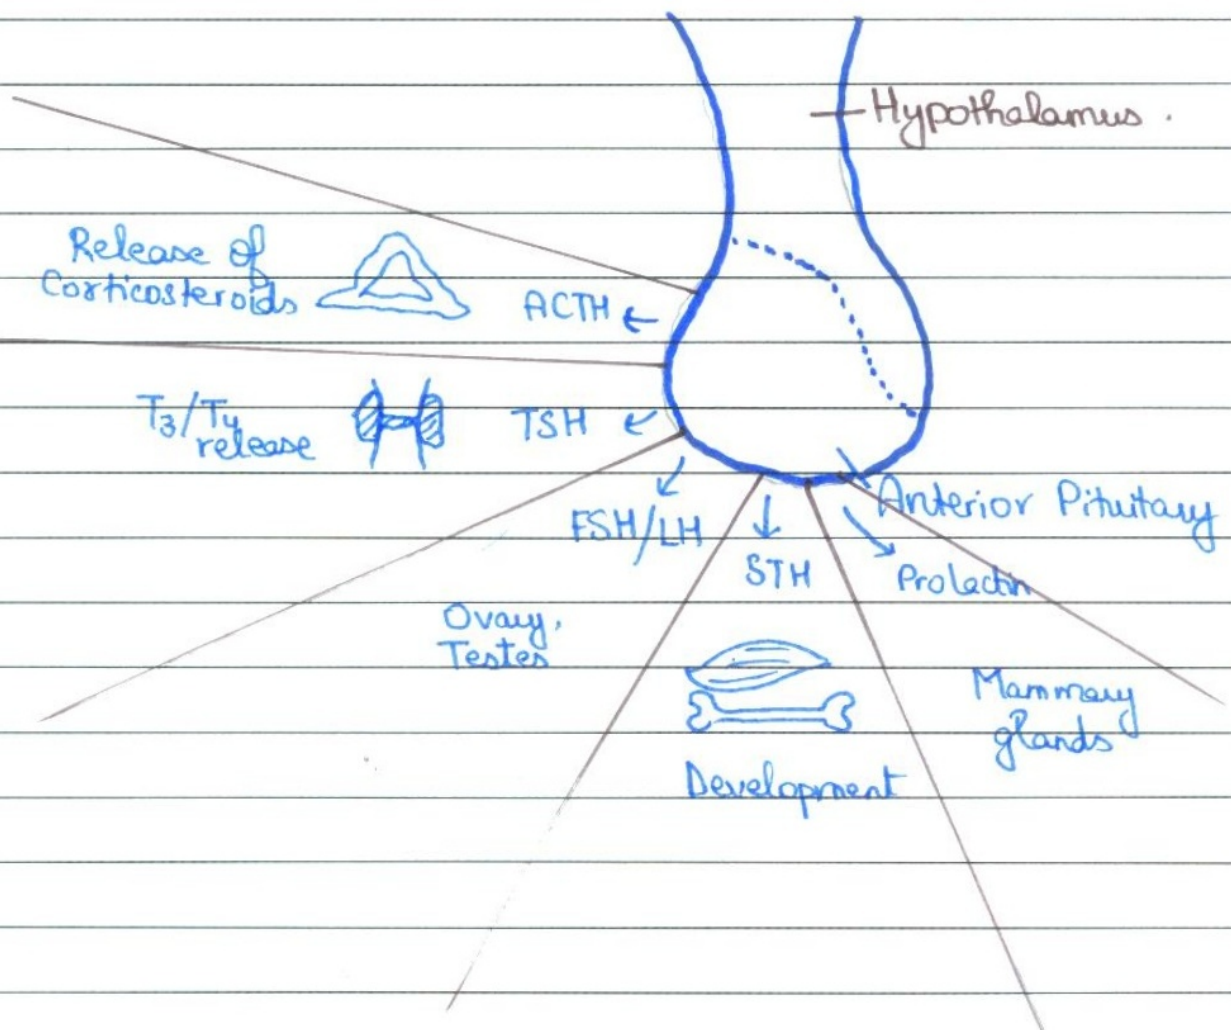 Hypothalamus.
Release of
Corticosteroids
ACTH
T3/T4
release
TSH
FSH/LH
Anterior Pituitary
STH
Prolactin
Ovary,
Testes
Mammary
glands
Development